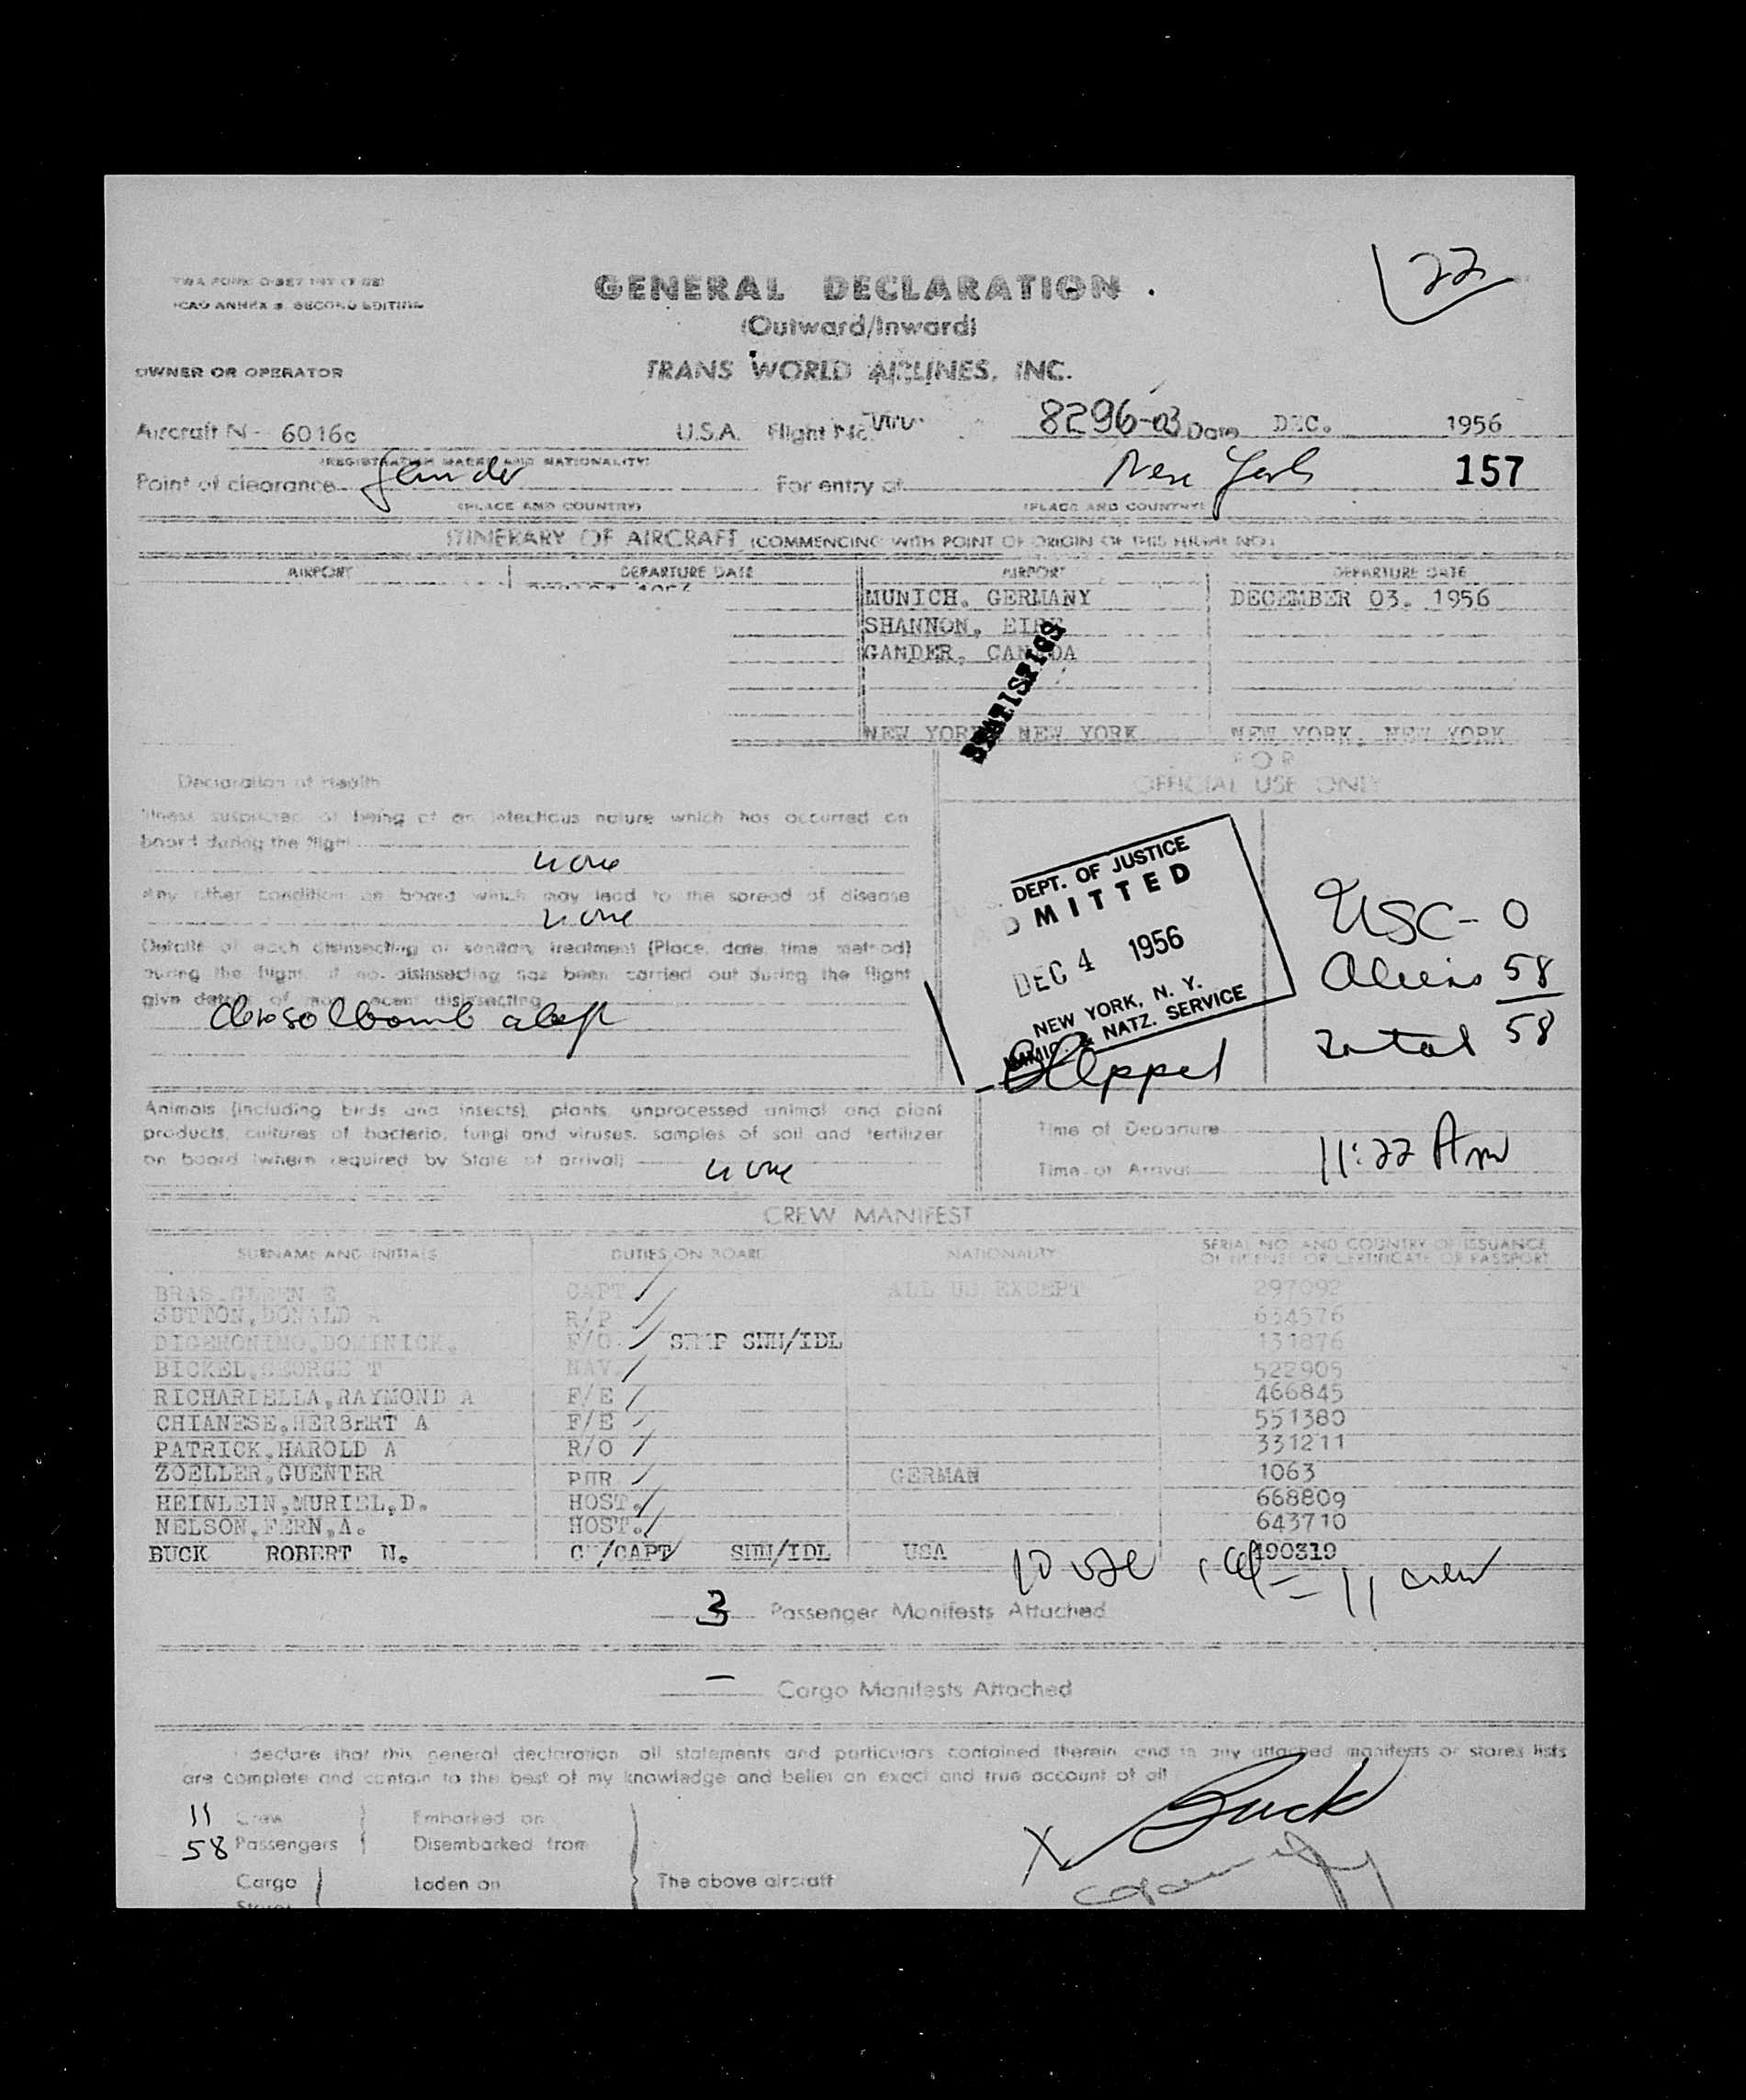 22
GENERAL DECLARATION
(Outward/Inward)
ICAO ANNEX 9 SECOND EDITION
OWNER OR OPERATOR
TRANS WORLD AIRLINES, INC.
Aircraft N- 6016c U.S.A. Flight No. 8296-03 Date DEC. 1956
(REGISTRATION MARKS AND NATIONALITY)
Point of clearance Gander For entry at New York 157
(PLACE AND COUNTRY) (PLACE AND COUNTRY)
ITINERARY OF AIRCRAFT (COMMENCING WITH POINT OF ORIGIN OF THIS FLIGHT NO.)
AIRPORT DEPARTURE DATE AIRPORT DEPARTURE DATE
MUNICH, GERMANY DECEMBER 03. 1956
SHANNON, EIRE
GANDER, CANADA
STATISTICS
NEW YORK, NEW YORK NEW YORK, NEW YORK
FOR
OFFICIAL USE ONLY
Declaration of Health
Illness suspected of being of an infectious nature which has occurred on
board during the flight
none
Any other condition on board which may lead to the spread of disease
none
Details of each disinsecting or sanitary treatment (Place, date, time, method)
during the flight. If no disinsecting has been carried out during the flight
give details of most recent disinsecting
DEPT. OF JUSTICE
ADMITTED
DEC 4 1956
NEW YORK, N. Y.
IMMIG. & NATZ. SERVICE
USC- 0
Aliens 58
Total 58
Animals (including birds and insects), plants, unprocessed animal and plant
products, cultures of bacteria, fungi and viruses, samples of soil and fertilizer
on board (where required by State of arrival) none
Time of Departure
Time of Arrival 11:22 Am
CREW MANIFEST
SURNAME AND INITIALS DUTIES ON BOARD NATIONALITY SERIAL NO. AND COUNTRY OF ISSUANCE
OF LICENSE OR CERTIFICATE OR PASSPORT
BRAS,GLENN E CAPT ALL US EXCEPT 297092
SUTTON,DONALD R/P 634576
DIGERONIMO,DOMINICK. F/O. SNN/IDL 131876
BICKEL,GEORGE T NAV 522905
RICHARIELLA,RAYMOND A F/E 466845
CHIANESE,HERBERT A F/E 551380
PATRICK,HAROLD A R/O 331211
ZOELLER,GUENTER PUR GERMAN 1063
HEINLEIN,MURIEL,D. HOST. 668809
NELSON,FERN,A. HOST. 643710
BUCK ROBERT N. /CAPT SNN/IDL USA 190319
10 USC = 11 crew
3 Passenger Manifests Attached
– Cargo Manifests Attached
I declare that this general declaration all statements and particulars contained therein and in any attached manifests or stores lists
are complete and contain to the best of my knowledge and belief an exact and true account of all
11 Crew Embarked on
58 Passengers Disembarked from
Cargo Laden on The above aircraft
X Buck